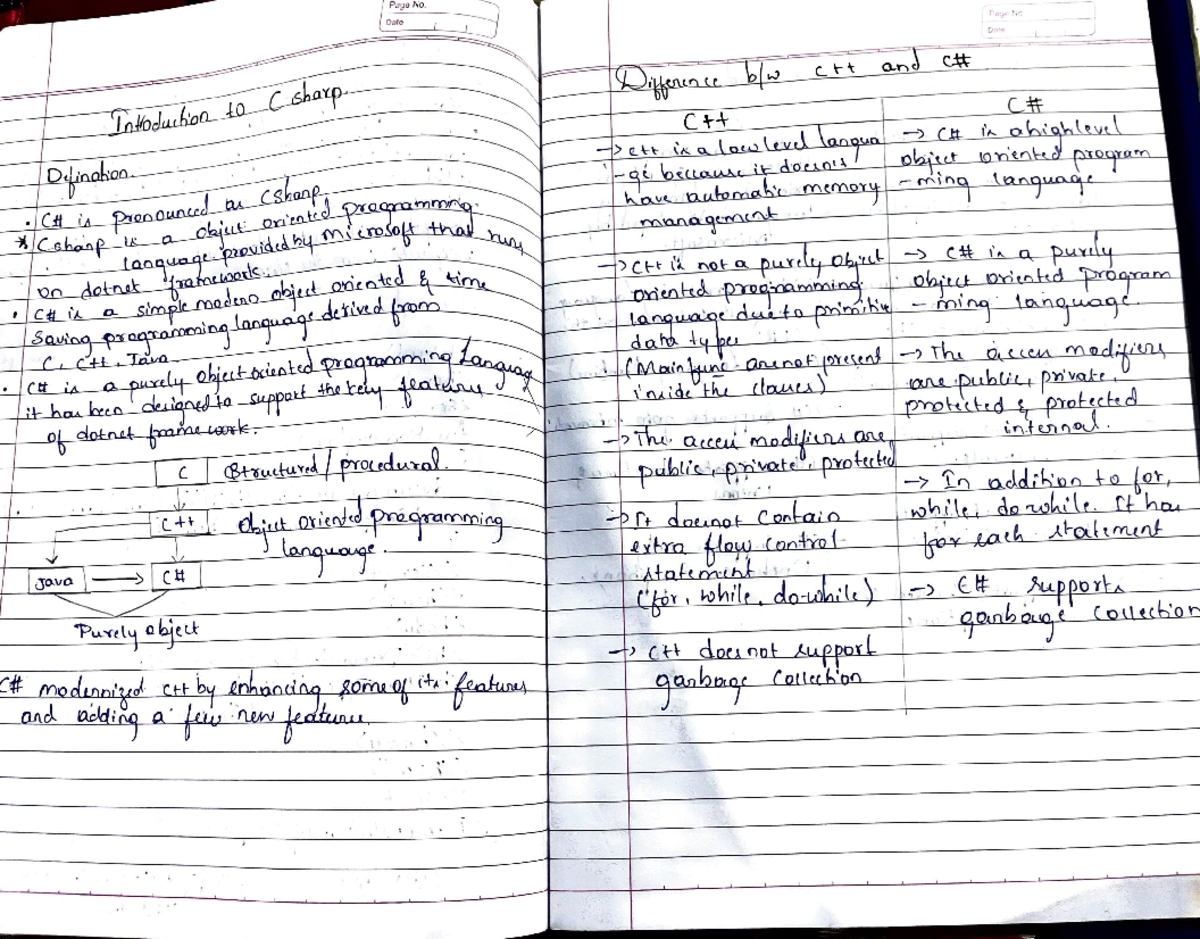 Page No.
Date
Introduction to C sharp.
Defination.
• C# is pronounced as CSharp.
* Csharp is a object oriented programming
language provided by microsoft that runs
on dotnet framework.
• C# is a simple modern object oriented & time
Saving programming language derived from
C, C++, Java
• C# is a purely object oriented programming Languag
it has been designed to support the key features
of dotnet framework.
C Structured / procedural.
C++ Object oriented programming
language.
Java C#
Purely object
C# modernized C++ by enhancing some of its features
and adding a few new features.
Page No.
Date
Difference b/w C++ and C#
C++
→ C++ is a low level langua
-ge because it doesnis'
have automatic memory
management
→ C++ is not a purely object
oriented programming
language due to primitive
data types
(Main func are not present
inside the classes)
→ The access modifiers are
public, private, protected
→ It doesnot contain
extra flow control
statement
(for, while, do-while)
→ C++ does not support
garbage collection
C#
→ C# is a high level
object oriented program
-ming language
→ C# is a purely
object oriented program
- ming language.
→ The access modifiers
are public, private,
protected & protected
internal.
→ In addition to for,
while, do while. It has
for each statement
→ C# supports
garbauge collection